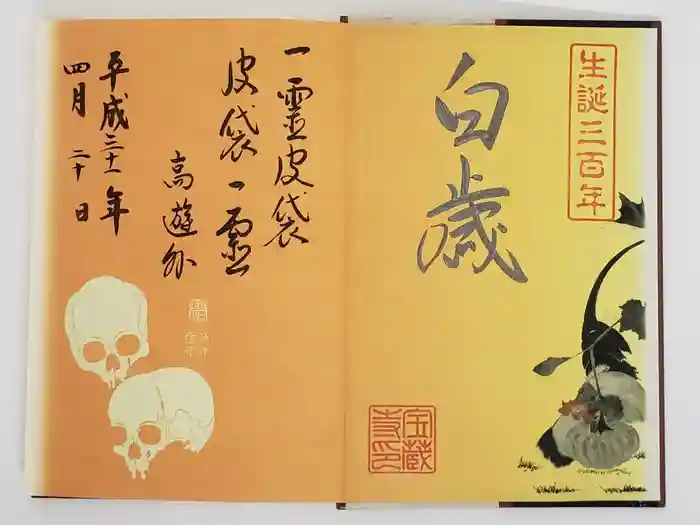 生誕三百年
白歳
宝蔵
寺印
一霊皮袋
皮袋一霊
高遊外
平成三十一年
四月二十日